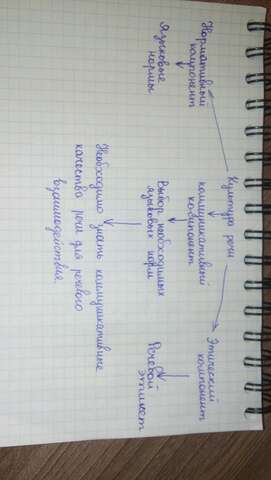 Культура речи
Нормативный
компонент
Языковые
нормы
коммуникативный
компонент
Выбор необходимых
языковых норм
Необходимо знать коммуникативные
качества речи для речевого
взаимодействия.
Этический
компонент
Речевой
этикет